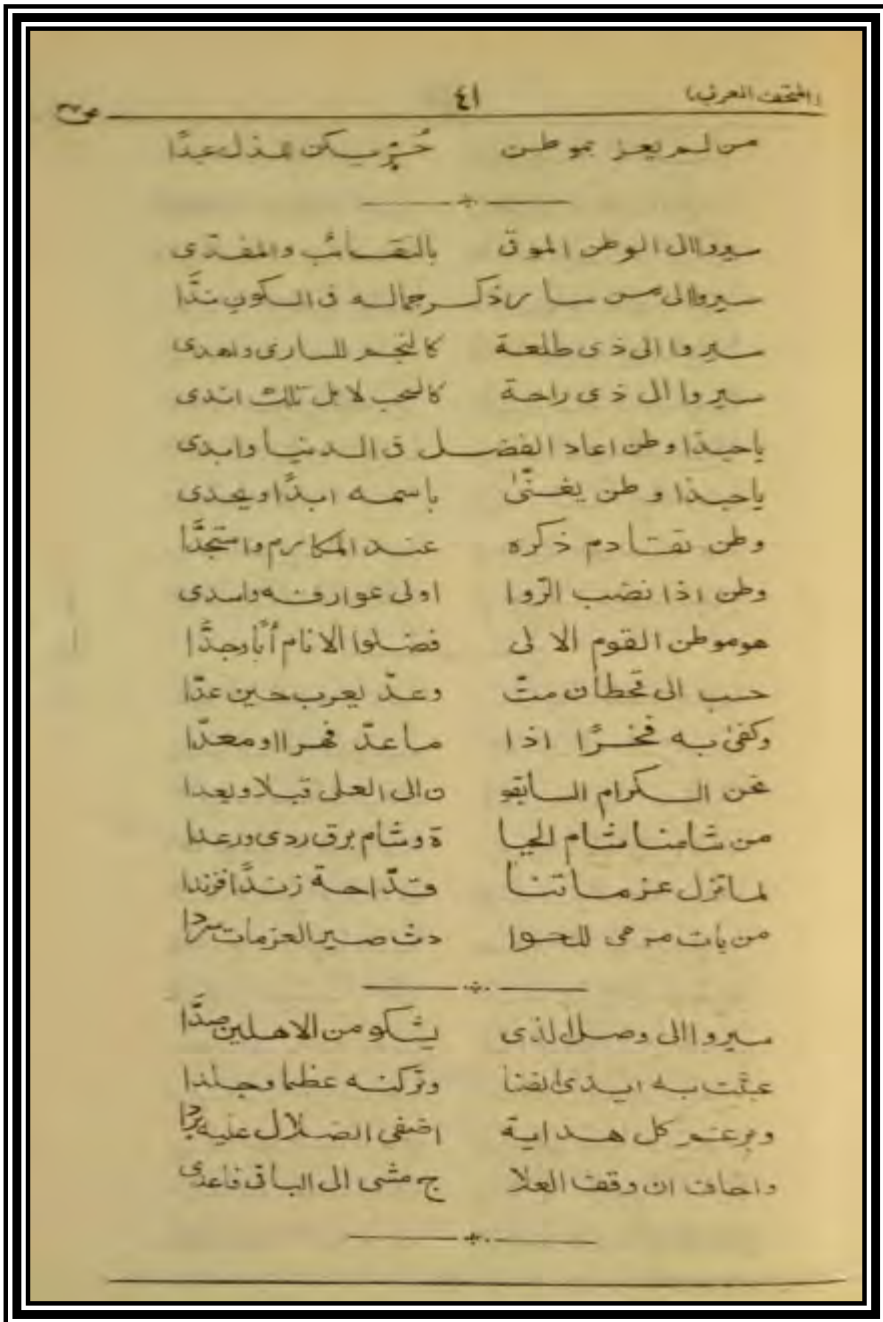 (المتحف المعرف) ٤١
من لم يعز بموطن حُرٍّ يكن عبدًا
سيروا الى الوطن الموقى بالنقائب والمفدّى
سيروا الى من سار ذكر جماله فى الكون ندًّا
سيروا الى ذى طلعة كالنجم للسارى واهدى
سيروا الى ذى راحة كالسحب لا بل تلك اندى
ياحبذا وطن اعاد الفضل فى الدنيا وابدى
ياحبذا وطن يغنّىٰ باسمه ابدًا ويحدى
وطن تقادم ذكره عند المكارم واستجدَّا
وطن اذا نضب الرّوا اولى عوارفه واسدى
هو موطن القوم الالى فضلوا الانام أبًا وجدَّا
حسب الى قحطان متّ وعدّ يعرب حين عدّا
وكفىٰ به فخرًا اذا ما عدّ فهرا او معدّا
نحن الكرام السابقو ن الى العلى قبلا وبعدا
من شامنا شام الحيا ة وشام برق ردى ورعدا
لما تزل عزماتنا قدّاحة زندًا فزندا
من بات مرمى للحوا دث صير العزمات سردا
سيروا الى وصل الذى يشكو من الاهلين صدًّا
عبثت به ايدى الضنا وتركنه عظما وجلدا
وبرغم كل هداية اضفى الضلال عليه بردا
واخاف ان وقف العلا ج مشى الى الباقى فاعدى